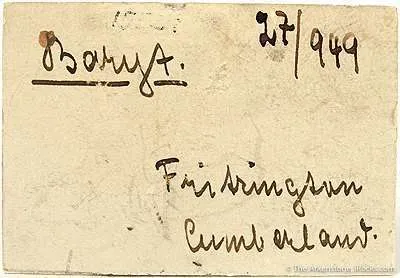 27/949
Baryt.
Fritrington
Cumberland.
© The Arkenstone, iRocks.com